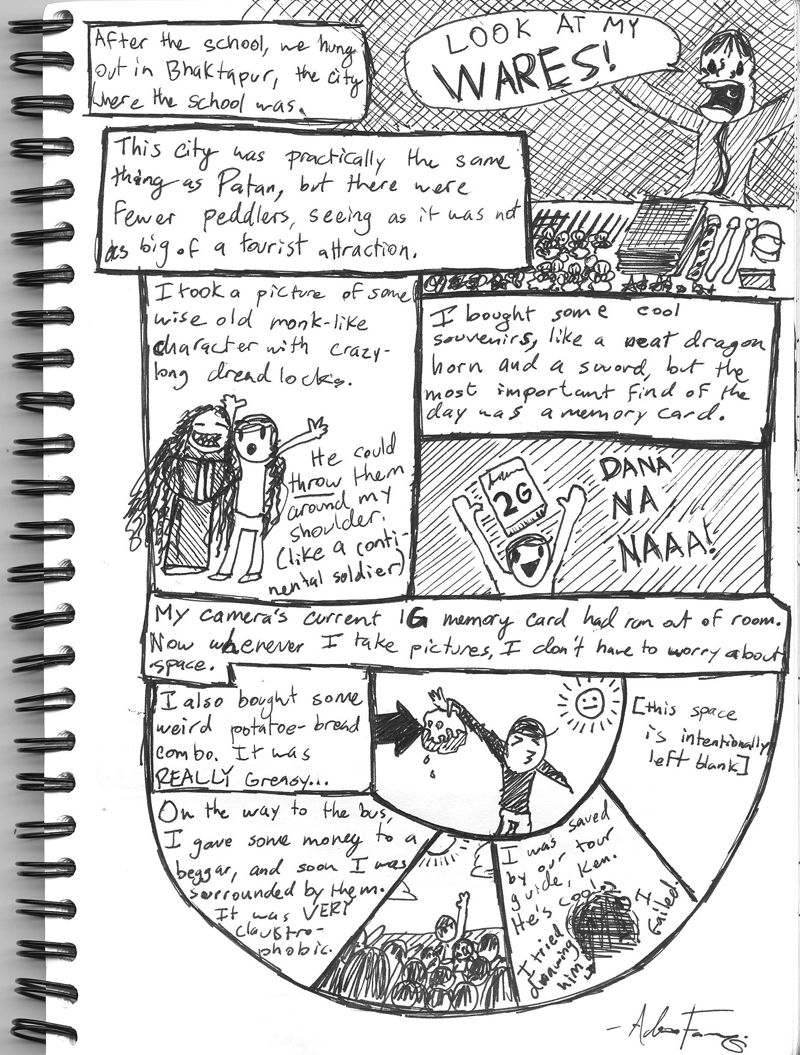 After the school, we hung
out in Bhaktapur, the city
where the school was.
LOOK AT MY
WARES!
This city was practically the same
thing as Patan, but there were
fewer peddlers, seeing as it was not
as big of a tourist attraction.
I took a picture of some
wise old monk-like
character with crazy-
long dreadlocks.
He could
throw them
around my
shoulder.
(like a conti-
nental soldier)
I bought some cool
souvenirs, like a neat dragon
horn and a sword, but the
most important find of the
day was a memory card.
2G
DANA
NA
NAAA!
My camera's current 1G memory card had ran out of room.
Now whenever I take pictures, I don't have to worry about
space.
I also bought some
weird potatoe-bread
combo. It was
REALLY Greasy...
[this space
is intentionally
left blank]
On the way to the bus,
I gave some money to a
beggar, and soon I was
surrounded by them.
It was VERY
claustro-
phobic.
I was saved
by our tour
guide, Ken.
He's cool.
I tried
drawing
him
I
failed.